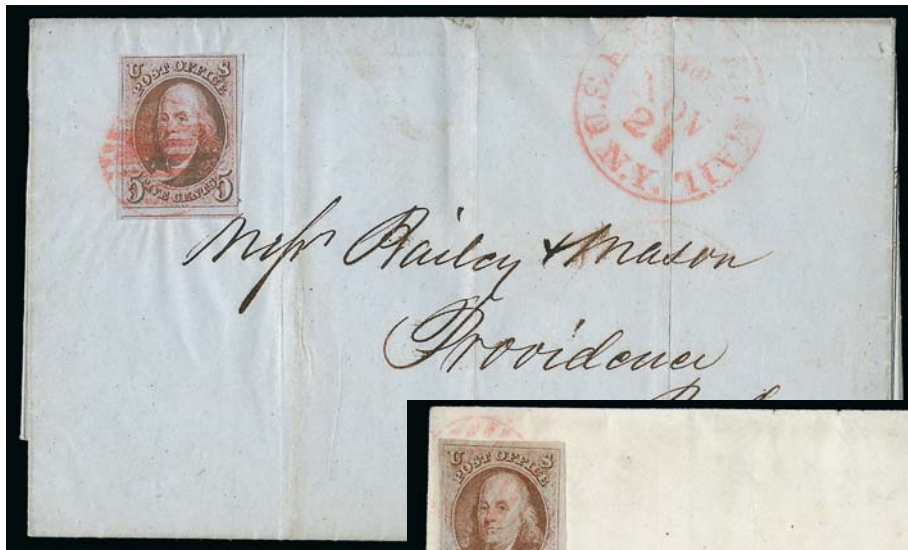 U S
POST OFFICE
5 FIVE CENTS 5
U.S. MAIL N.Y.
NOV
2
Messrs Hailey & Mason
Providence
U S
POST OFFICE